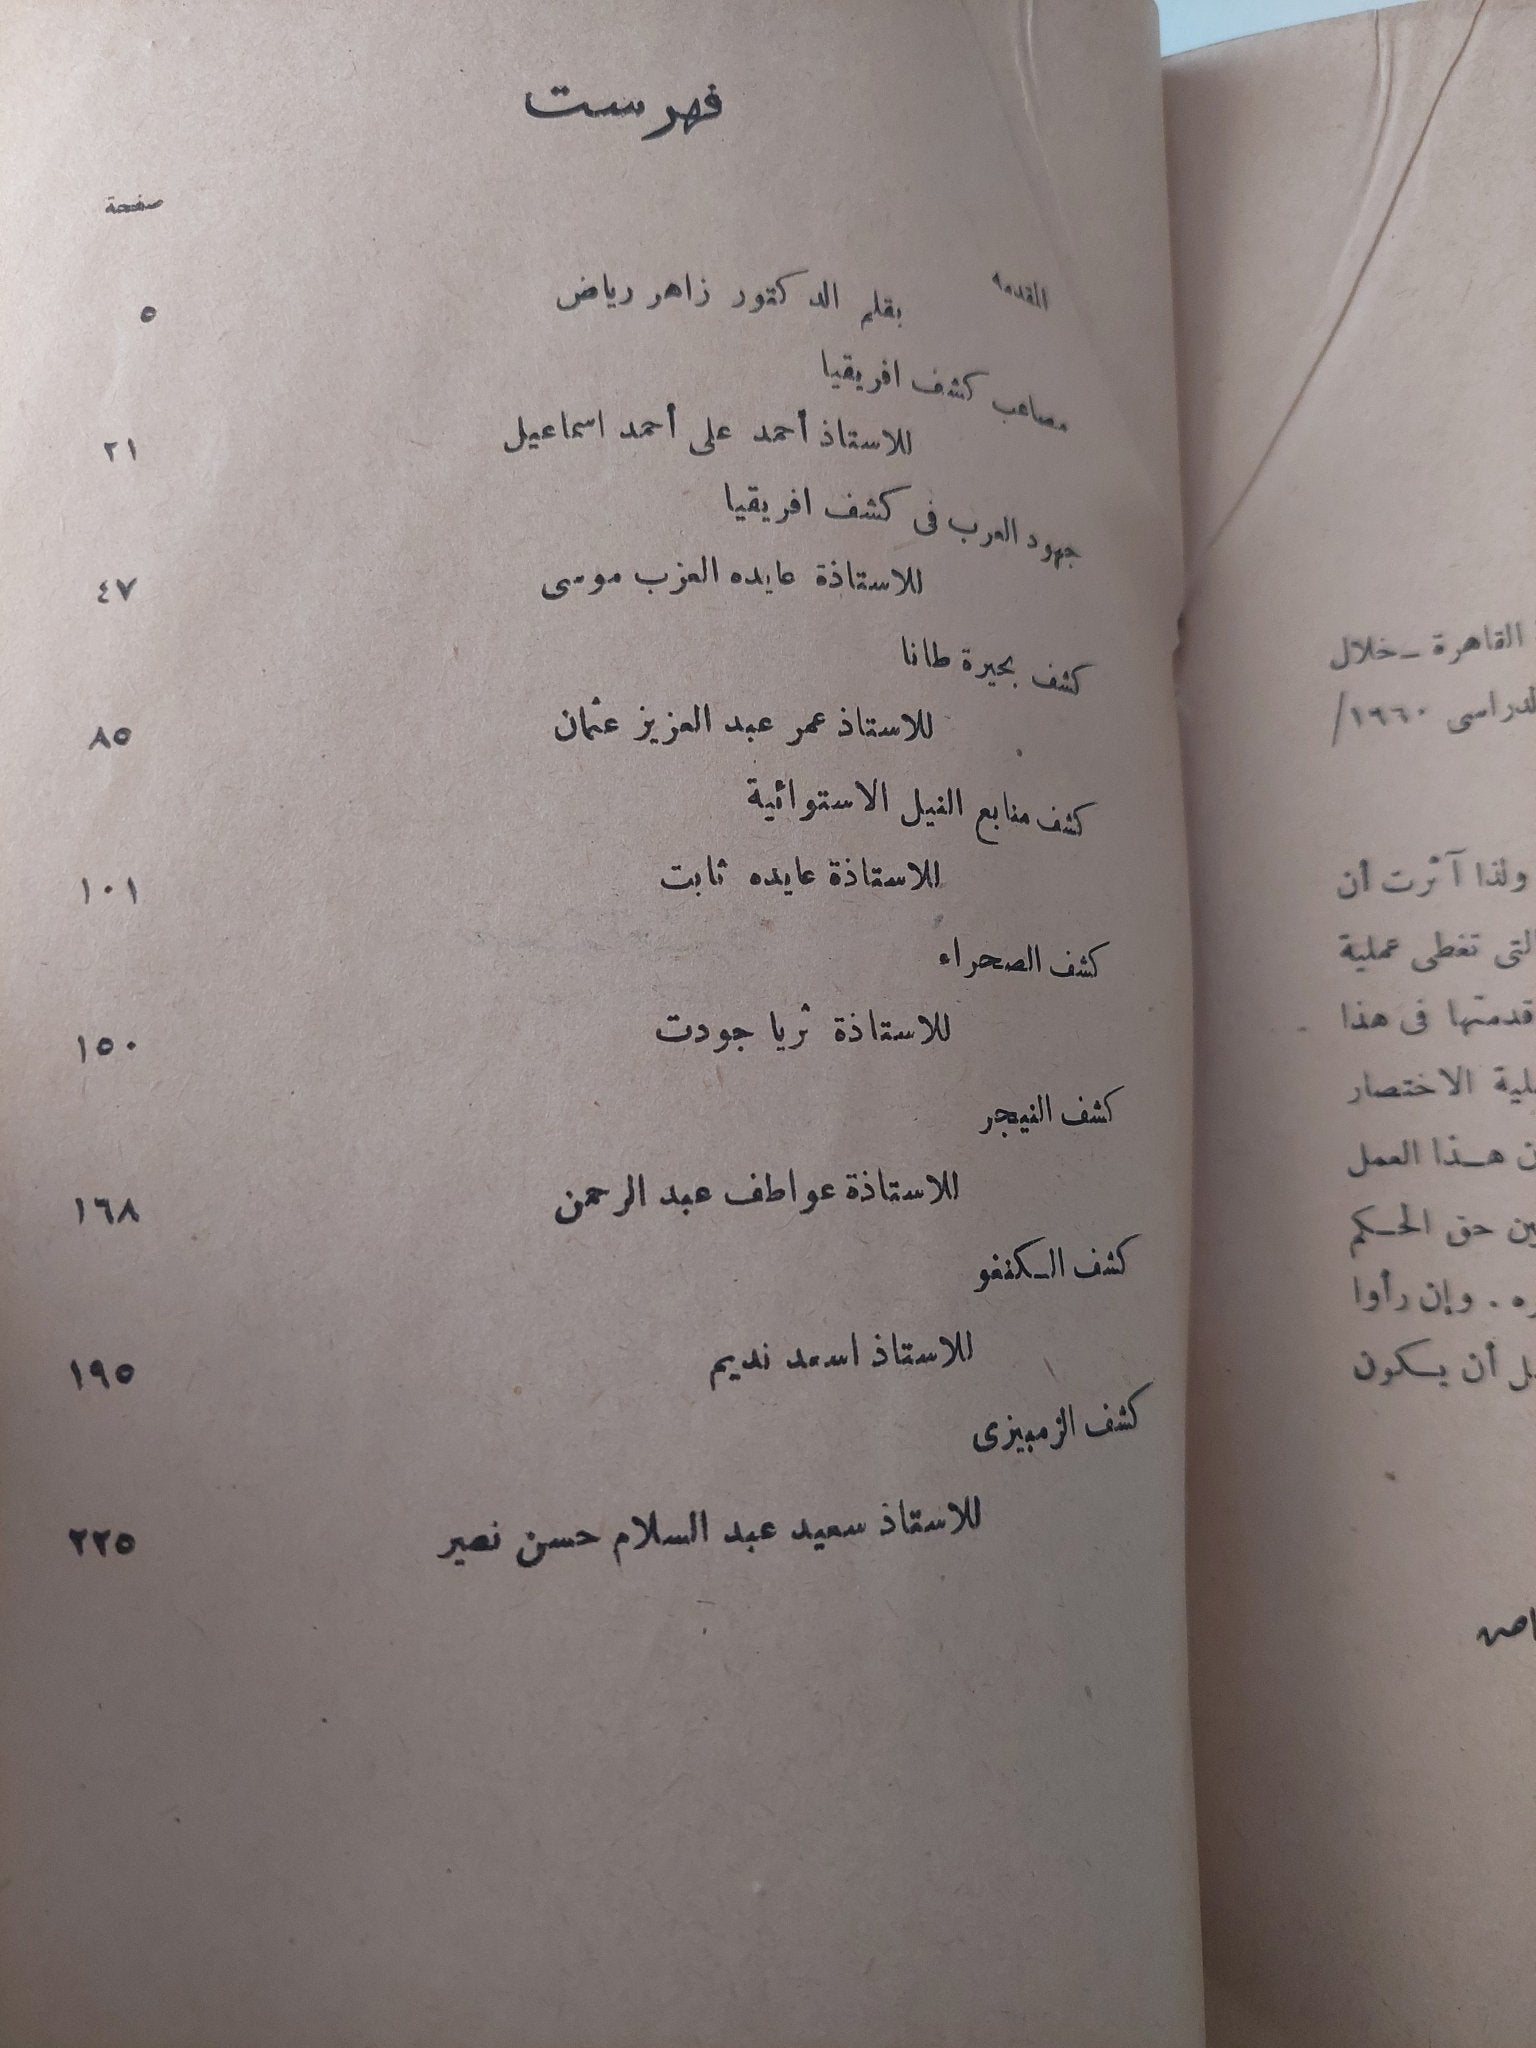 فهرست
صفحة
المقدمه
بقلم الدكتور زاهر رياض ٥
مصاعب كشف افريقيا
للاستاذ أحمد على أحمد اسماعيل ٢١
جهود العرب فى كشف افريقيا
للاستاذة عايده العزب موسى ٤٧
كشف بحيرة طانا
للاستاذ عمر عبد العزيز عثمان ٨٥
كشف منابع النيل الاستوائية
للاستاذة عايده ثابت ١٠١
كشف الصحراء
للاستاذة ثريا جودت ١٥٠
كشف النيجر
للاستاذة عواطف عبد الرحمن ١٦٨
كشف الـكنغو
للاستاذ اسعد نديم ١٩٥
كشف الزمبيزى
للاستاذ سعيد عبد السلام حسن نصير ٢٢٥
القاهرة – خلال
الدراسى ١٩٦٠/
ولذا آثرت أن
التى تغطى عملية
قدمتها فى هذا
الاختصار
هـذا العمل
حق الحـكم
. وإن رأوا
أن يـكون